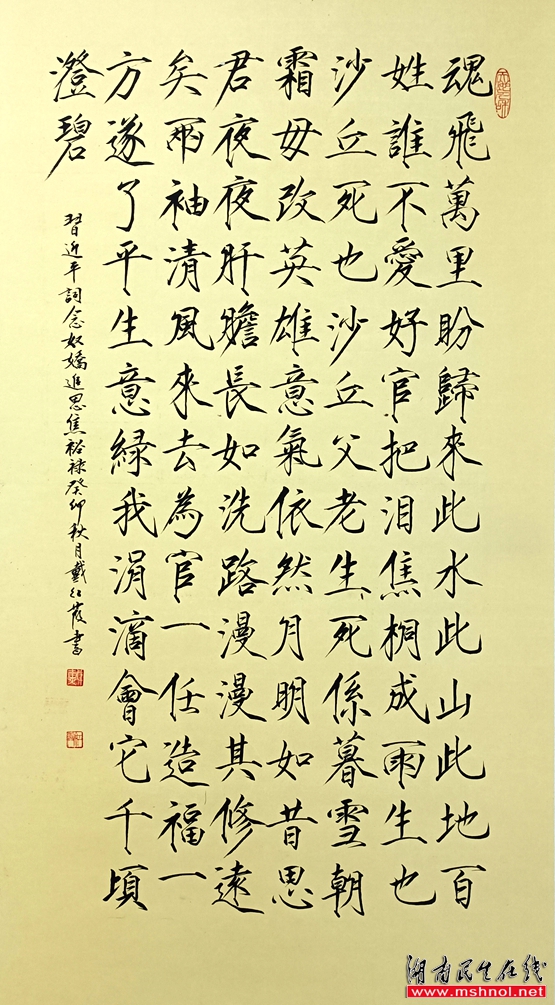 魂飛萬里盼歸來此水此山此地百
姓誰不愛好官把泪焦桐成雨生也
沙丘死也沙丘父老生死係暮雪朝
霜毋改英雄意氣依然月明如昔思
君夜夜肝膽長如洗路漫漫其修遠
矣兩袖清風來去為官一任造福一
方遂了平生意綠我涓滴會它千頃
澄碧
習近平詞念奴嬌追思焦裕祿癸卯秋月戴红霞書
湖南民生在线
www.mshnol.net